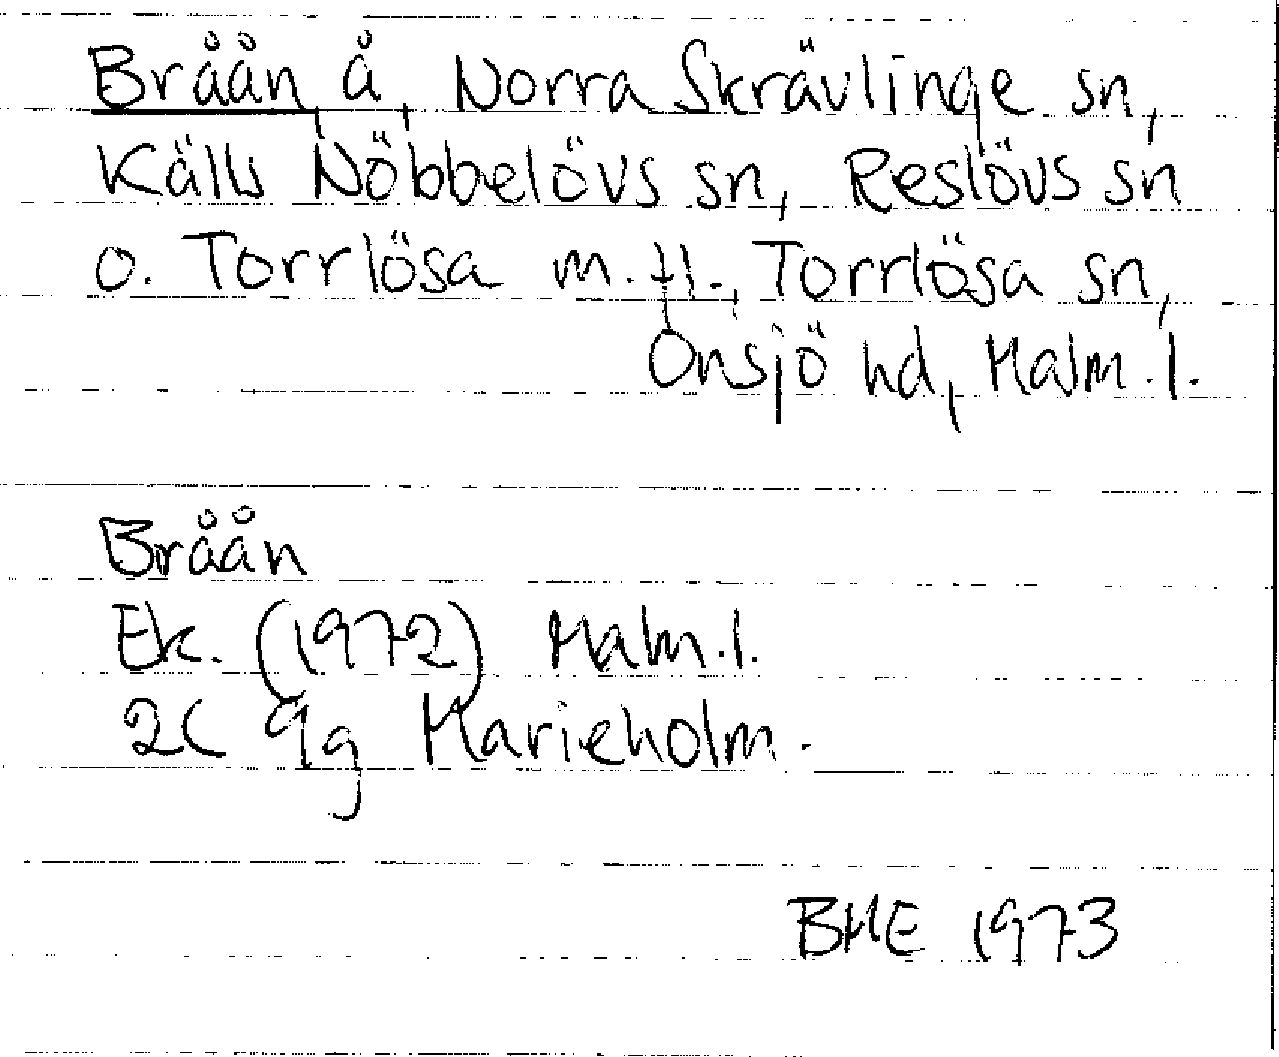 Bråån å, Norra Skrävlinge sn,
Källs Nöbbelövs sn, Reslövs sn
o. Torrlösa m.fl., Torrlösa sn,
Onsjö hd, Malm.l.
Bråån
Ek. (1972) Malm.l.
2C 9g Marieholm.
BHE 1973